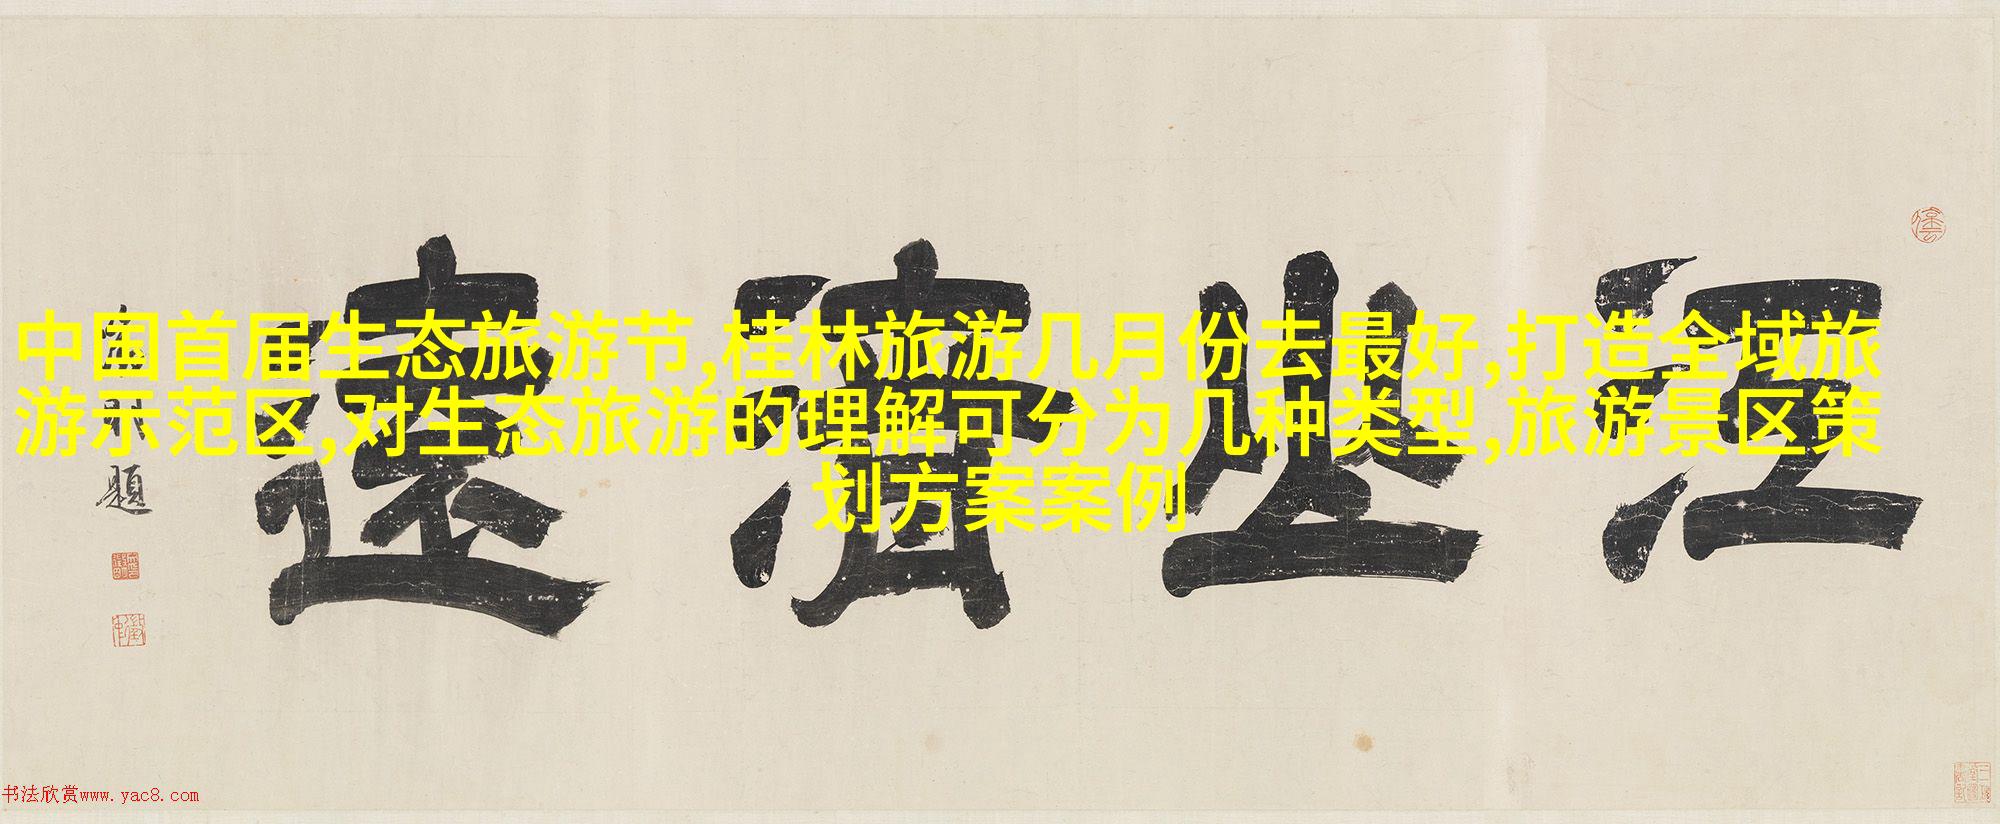 江山清遠
題
中国首届生态旅游节,桂林旅游几月份去最好,打造全域旅
游示范区,对生态旅游的理解可分为几种类型,旅游景区策
划方案案例
书法欣赏www.yac8.com